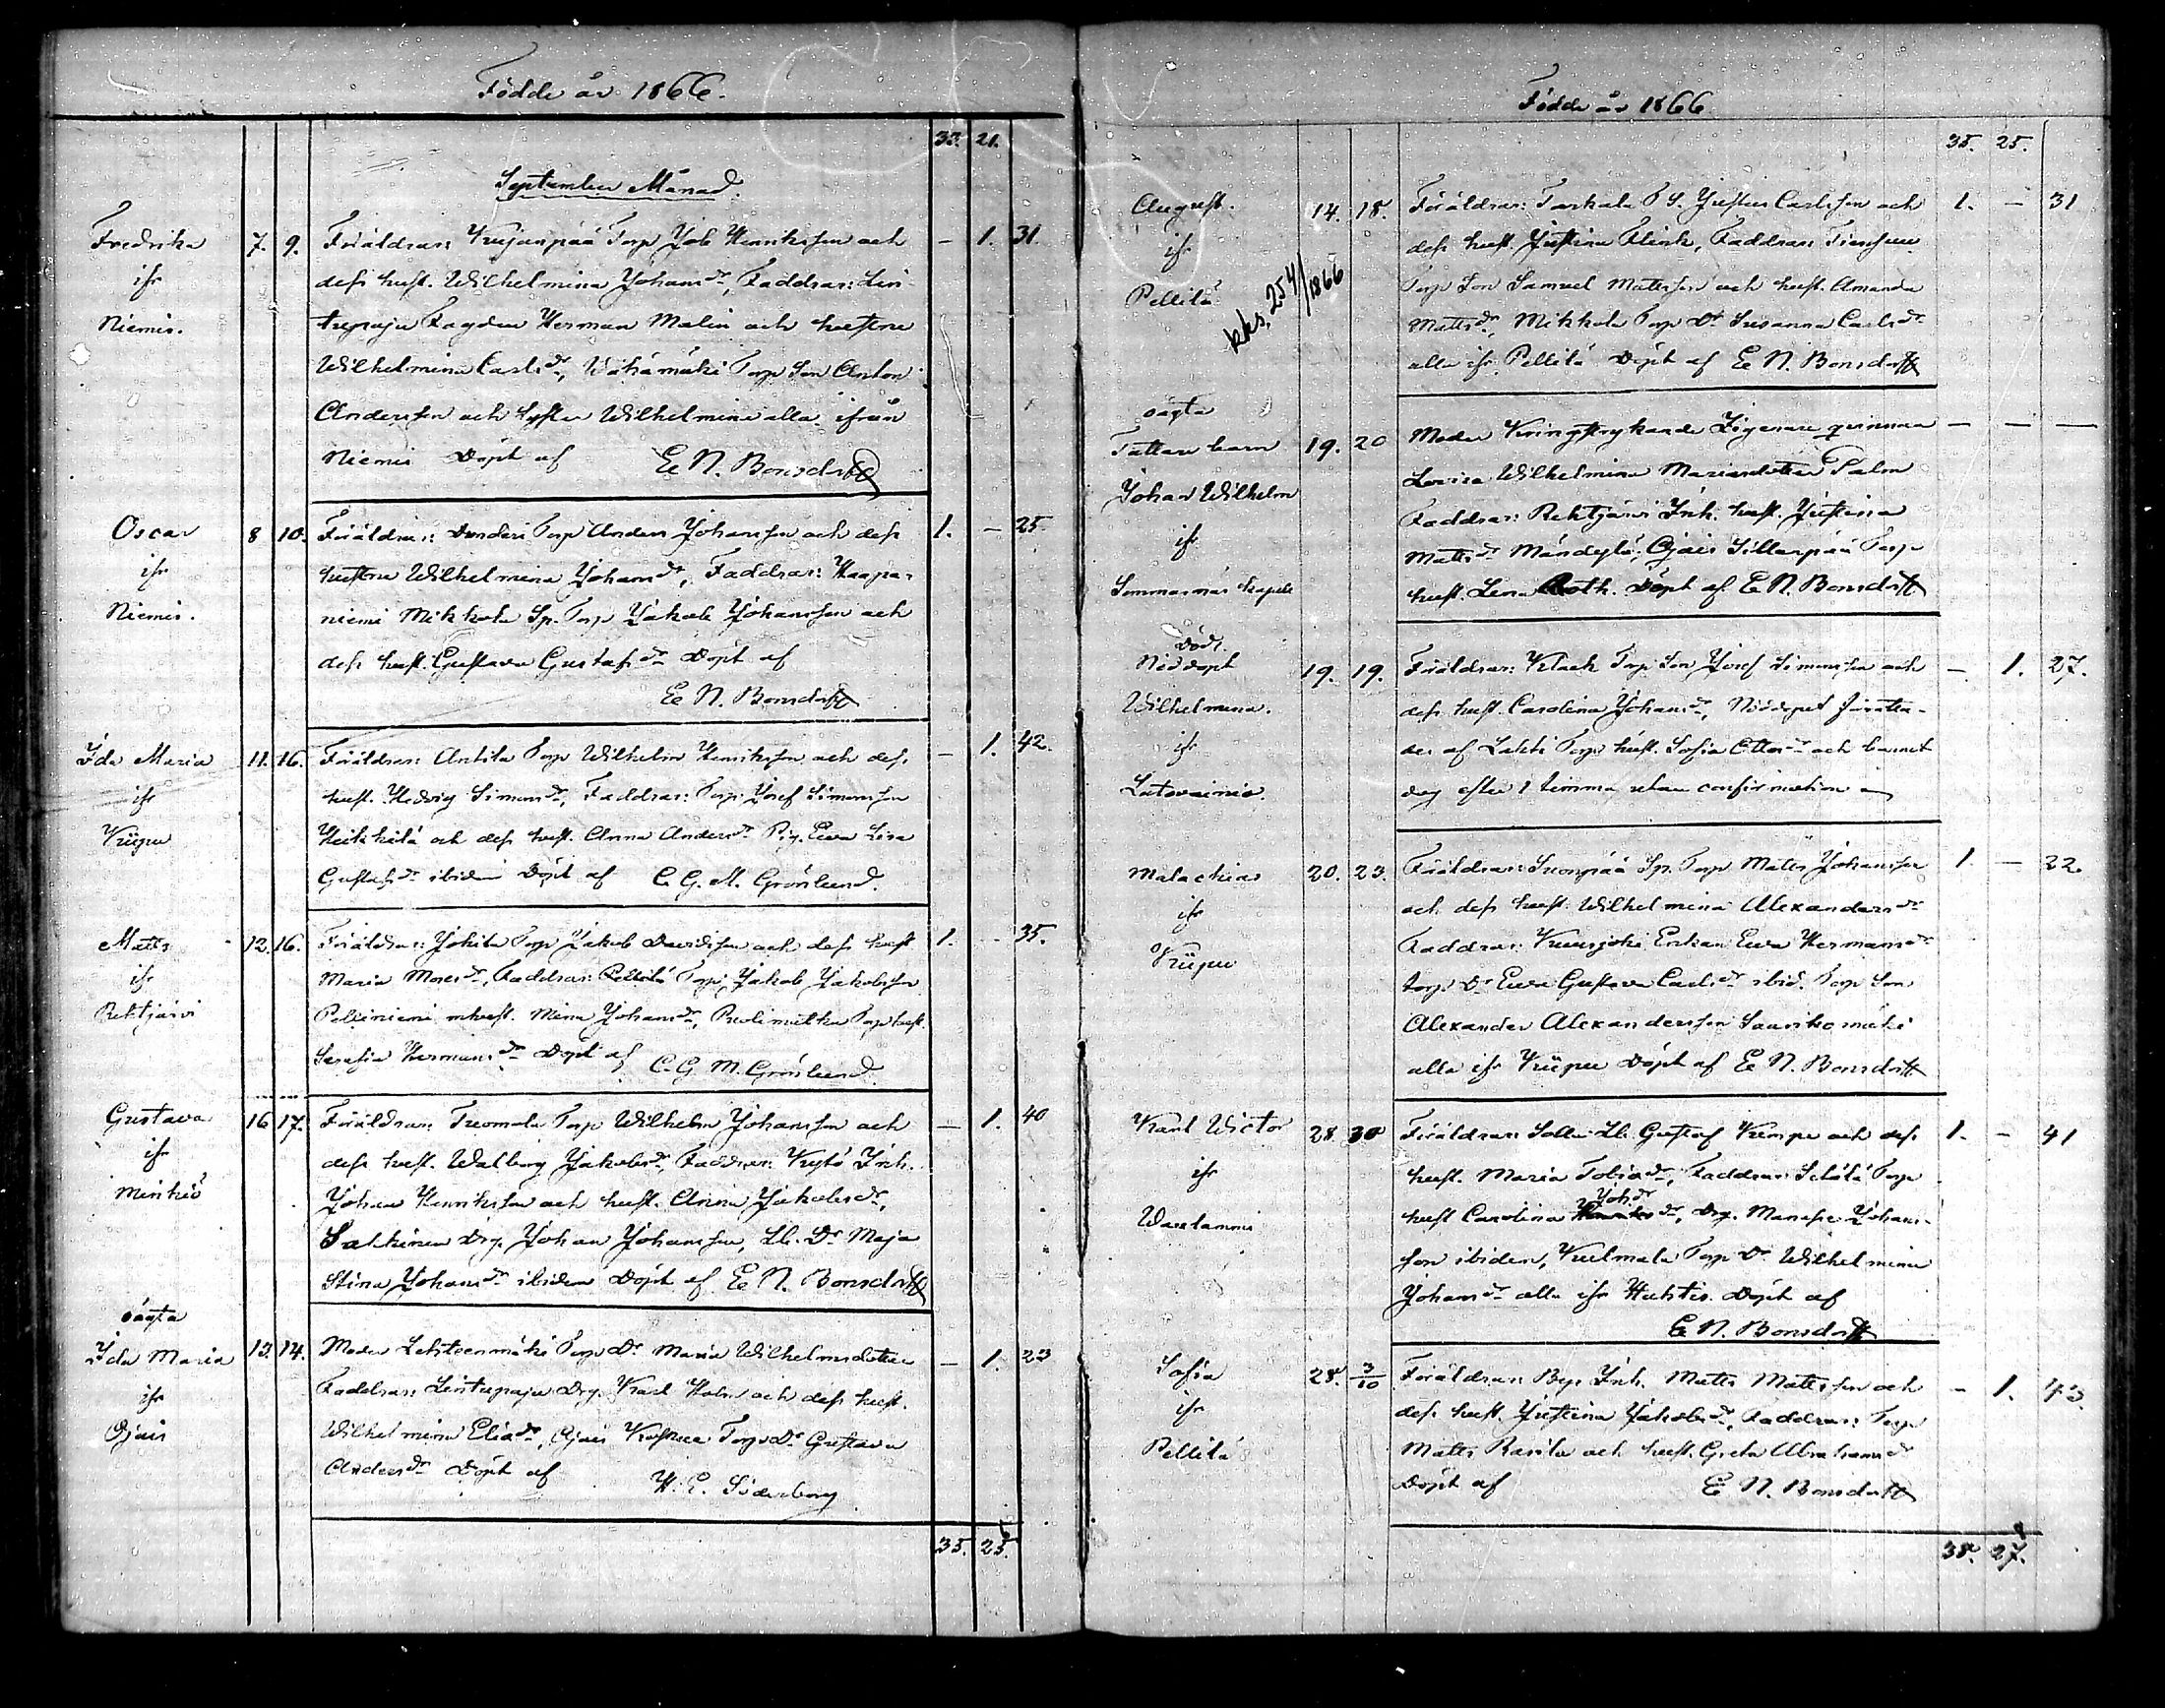 Födde år 1866.
33. 21.
September Månad.
Fredrika ifr Niemis. 7. 9. — 1. 31.
Föräldrar: Kujanpää Torp Job Henriksson och
dess hust. Wilhelmina Johansdr, Faddrar: Lin
tupaju Fagden Herman Malin och hustru
Wilhelmina Carlsdr, Wähämäki Torp Son Anton
Andersson och syster Wilhelmina alla ifrån
Niemis Döpt af E N. Bonsdorff
Oscar ifr Niemis. 8 10. 1. — 25.
Föräldrar: Donderi Torp Anders Johansson och dess
hustru Wilhelmina Johansdr, Faddrar: Haapa-
niemi Mikkola Sp. Torp Jakob Johansson och
dess hust. Gustava Gustafsdr Döpt af
E N. Bonsdorff
Ida Maria ifr Kiipu 11. 16. — 1. 42.
Föräldrar: Antila Torp Wilhelm Henriksson och dess
hust. Hedvig Simonsdr, Faddrar: Torp Josef Simonsson
Heikkilä och dess hust. Anna Andersdr Pig. Ewa Lisa
Gustafsdr ibidem Döpt af C. G. M. Grönlund.
Matts ifr Rehtijärvi 12. 16. 1. - 35.
Föräldrar: Jokila Torp Jakob Davidsson och dess hust
Maria Mosesdr, Faddrar: Pellilä Torp Jakob Jakobsson
Pelliniemi mhust. Mina Johansdr, Torp hust.
Serafia Hermansdr Döpt af C. G. M. Grönlund.
Gustava ifr Minkiö 16 17. — 1. 40
Föräldrar: Tuomola Torp Wilhelm Johansson och
dess hust. Walborg Jakobsdr, Faddrar: Kystö Inh.
Johan Henriksson och hust. Anna Jakobsdr,
Salkinen Drg. Johan Johansson, Lb. Dr Maja
Stina Johansdr ibidem Döpt af E N. Bonsdorff
oägta
Ida Maria ifr Ojais 13. 14. — 1. 23
Moder Lehteenmäki Torp Dr Maria Wilhelmsdotter
Faddrar: Lintupaju Drg. Karl Holm och dess hust.
Wilhelmina Eliadr, Ojais Torp Dr Gustava
Andersdr Döpt af H. E. Söderborg
35. 25.
Födde år 1866.
35. 25.
August. ifr Pellilä 14. 18. 1. — 31
kks. 254/1866
Föräldrar: Tarkala T S. Justus Carlsson och
dess hust. Justina Flink, Faddrar:
Torp Son Samuel Mattsson och hust. Amanda
Mattsdr, Mikkola Torp Dr Susanna Carlsdr
alla ifr. Pellilä Döpt af E N. Bonsdorff
oägta
Tattare barn
Johan Wilhelm
ifr
Sommarnäs kapell 19. 20 — — —
Moder Kringstrykande Zigenare qvinnan
Lovisa Wilhelmina Mariasdotter Palm
Faddrar: Rehtijärvi Inh. hust. Justina
Mattsdr Mändylä, Ojais Sillanpää Torp
hust. Lena Roth. Döpt af E N. Bonsdorff
Död.
Nöddöpt
Wilhelmina.
ifr
Latovainio. 19. 19. — 1. 27.
Föräldrar: Klack Torp Son Josef Simonsson och
dess hust. Carolina Johansdr, Nöddopet förätta-
des af Lahti Torp hust. Sofia Ottosdr och barnet
dog efter 1 timma utan confirmation
Malachias ifr Kiipu 20. 23. 1. — 22.
Föräldrar: Suonpää Sp. Torp Matts Johansson
och dess hust. Wilhelmina Alexandersdr
Faddrar: Kuusjoki Enkan Ewa Hermansdr
torp Dr Ewa Gustava Carlsdr ibid. Torp Son
Alexander Alexandersson Saarikomäki
alla ifr Kiipu Döpt af E N. Bonsdorff
Karl Victor ifr Waulammi 28 30 1. — 41
Föräldrar: Solln Lb. Gustaf Kumpu och dess
hust. Maria Tobiadr, Faddrar: Setälä Torp
Johdr
hust Carolina, Drg. Manasse Johans-
son ibidem, Kulmala Torp Dr Wilhelmina
Johansdr alla ifr Huhtis. Döpt af
E N. Bonsdorff
Sofia ifr Pellilä 28. 3/10 — 1. 43.
Föräldrar: Bys Inh. Matts Mattsson och
dess hust. Justina Jakobsdr, Faddrar: Torp
Matts Rasila och hust. Greta Abrahamsdr
Döpt af E N. Bonsdorff
38. 27.